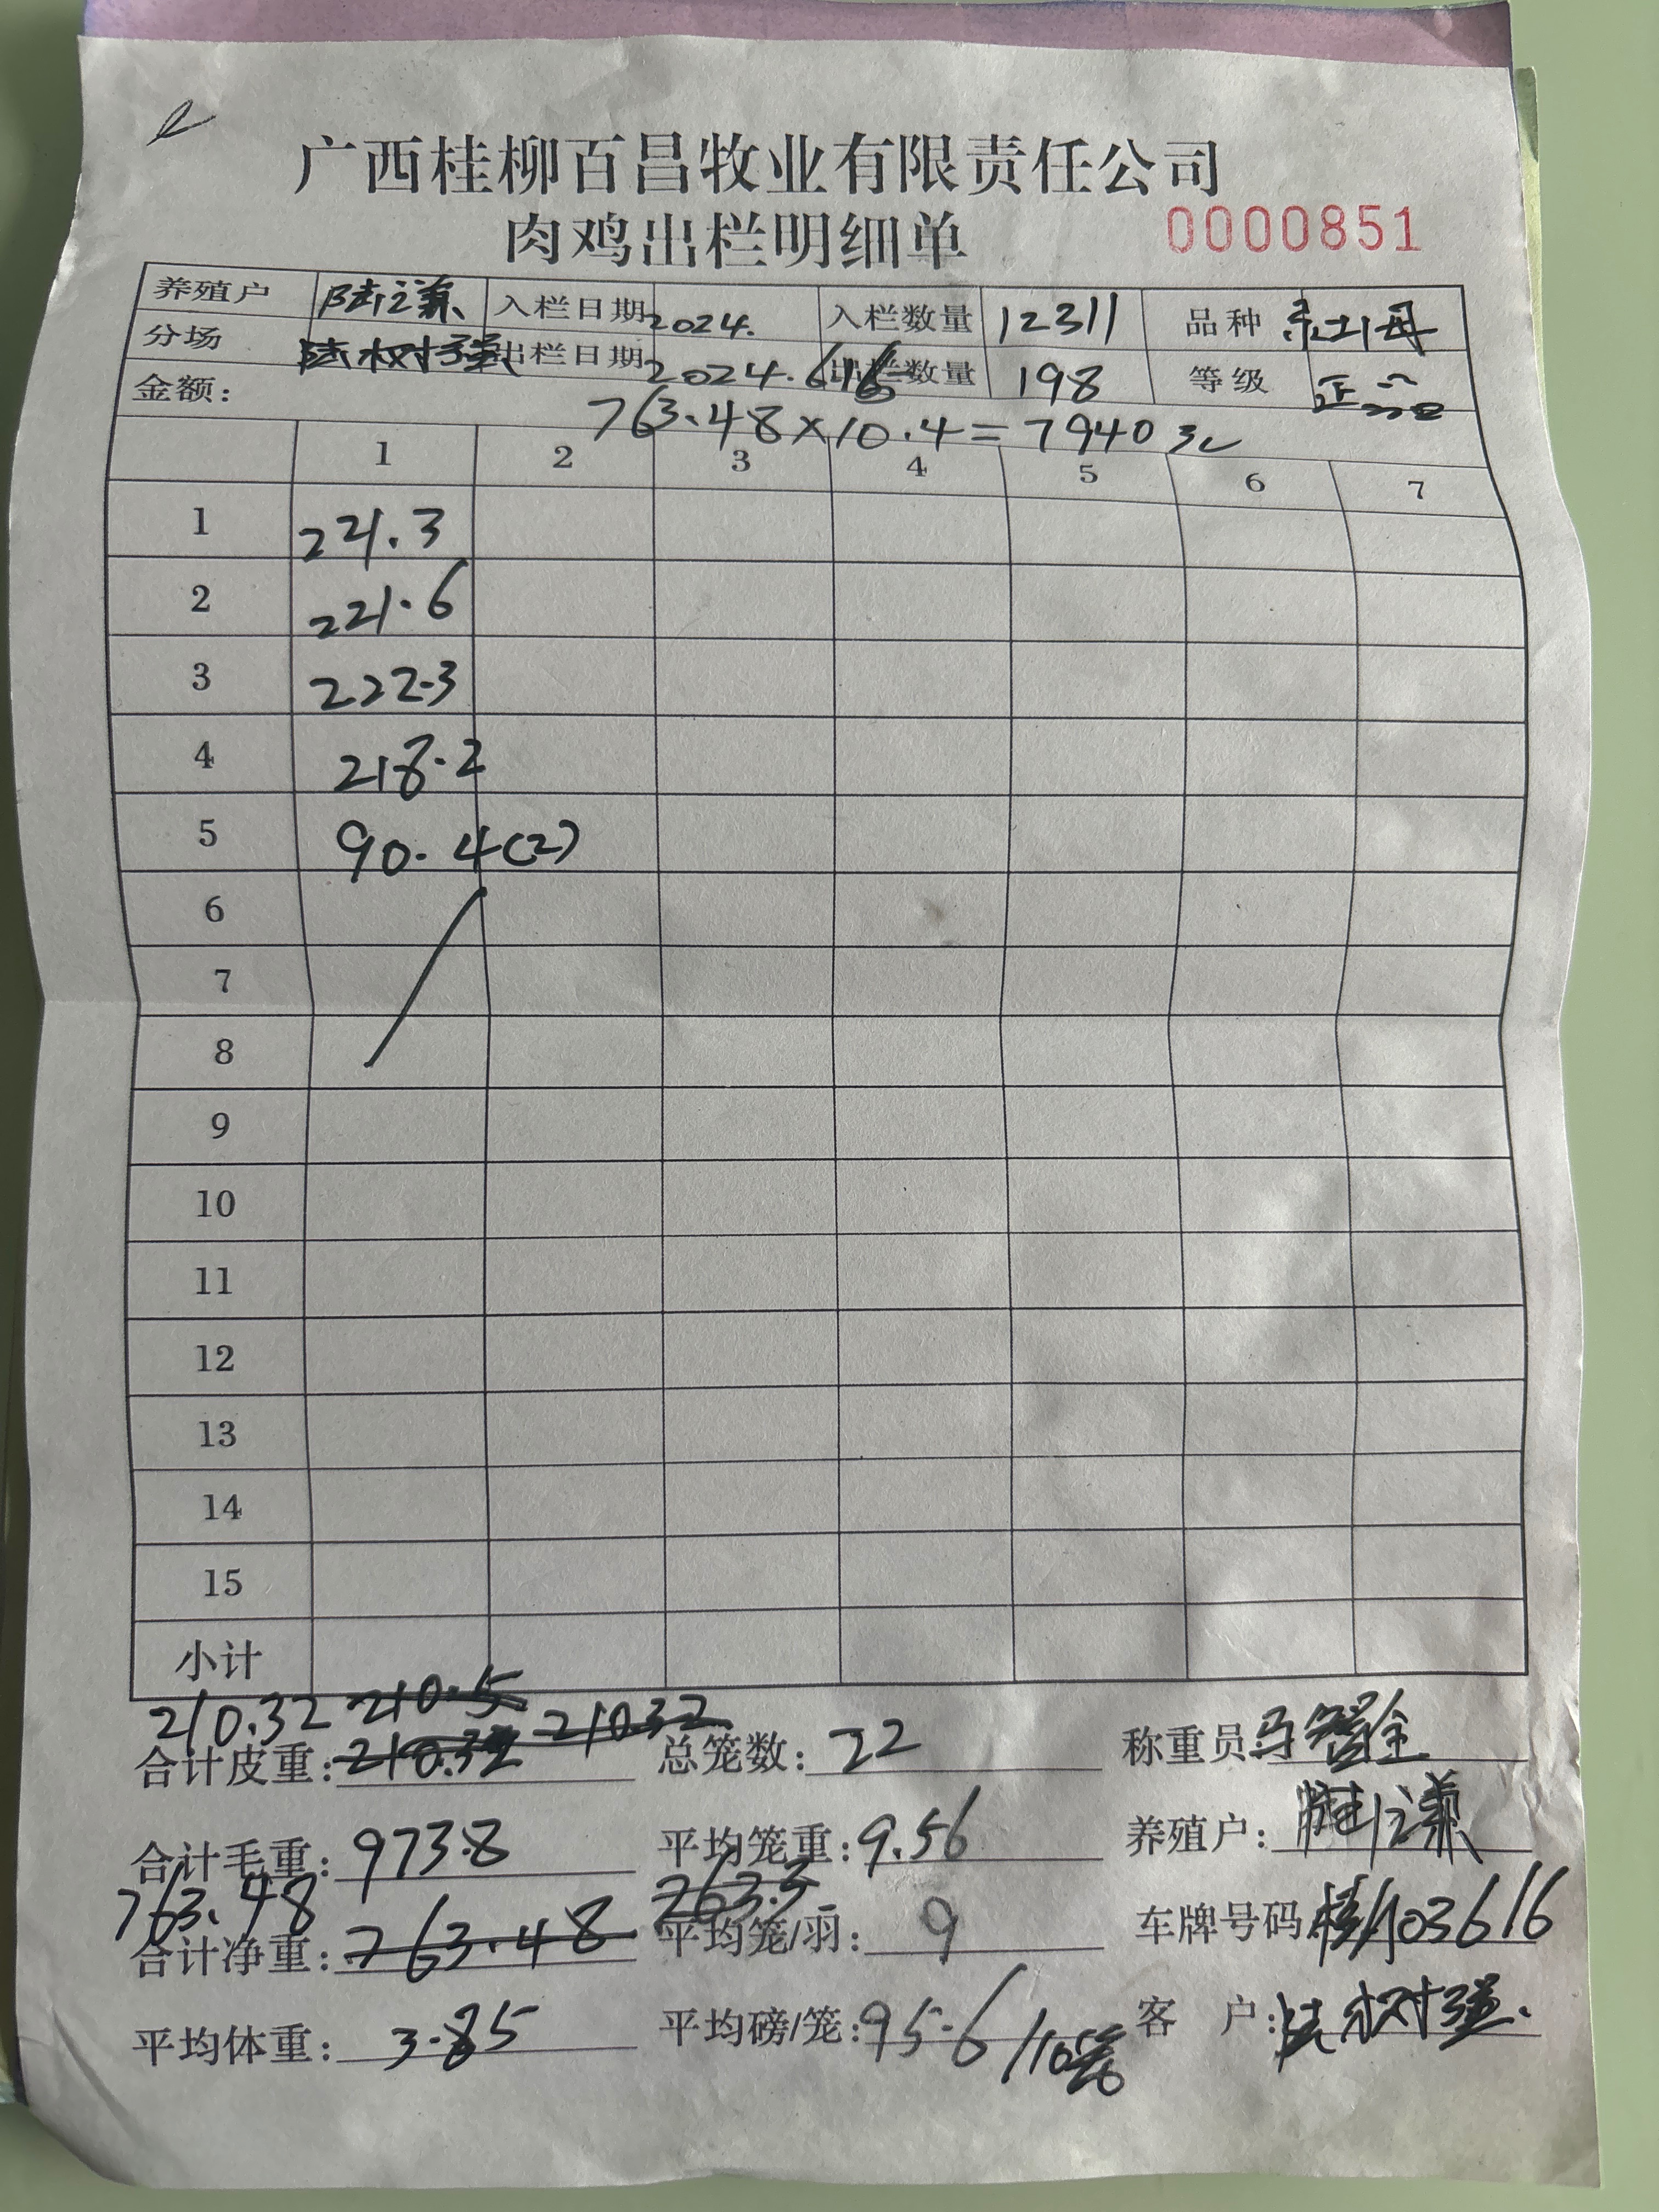 广西桂柳百昌牧业有限责任公司
肉鸡出栏明细单 0000851
养殖户 陆谦 入栏日期 2024. 入栏数量 12311 品种
分场 陆树强 出栏日期 2024.6.16 出栏数量 198 等级 正品
金额: 763.48×10.4=7940元
1 2 3 4 5 6 7
1 221.3
2 221.6
3 222.3
4 218.2
5 90.4(2)
6
7
8
9
10
11
12
13
14
15
小计
210.32 210.5
合计皮重: 210.32 21032 总笼数: 22 称重员
合计毛重: 973.8 平均笼重: 9.56 养殖户:
763.48 763.5
合计净重: 763.48 平均笼/羽: 9 车牌号码
平均体重: 3.85 平均磅/笼: 95.6/10笼 客户: 陆树强.